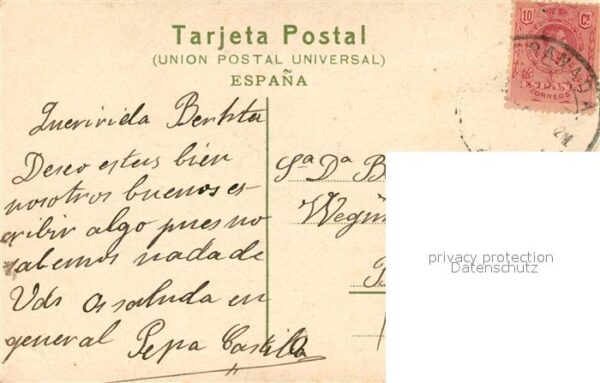 Tarjeta Postal
(UNION POSTAL UNIVERSAL)
ESPAÑA
10 Cs
CORREOS
GRANADA
Querivida Bertita
Deseo esteis bien
nosotros buenos es
cribir algo pues no
sabemos nada de
Vds os saluda en
general Pepa Castilla
Sta Da B
privacy protection
Datenschutz